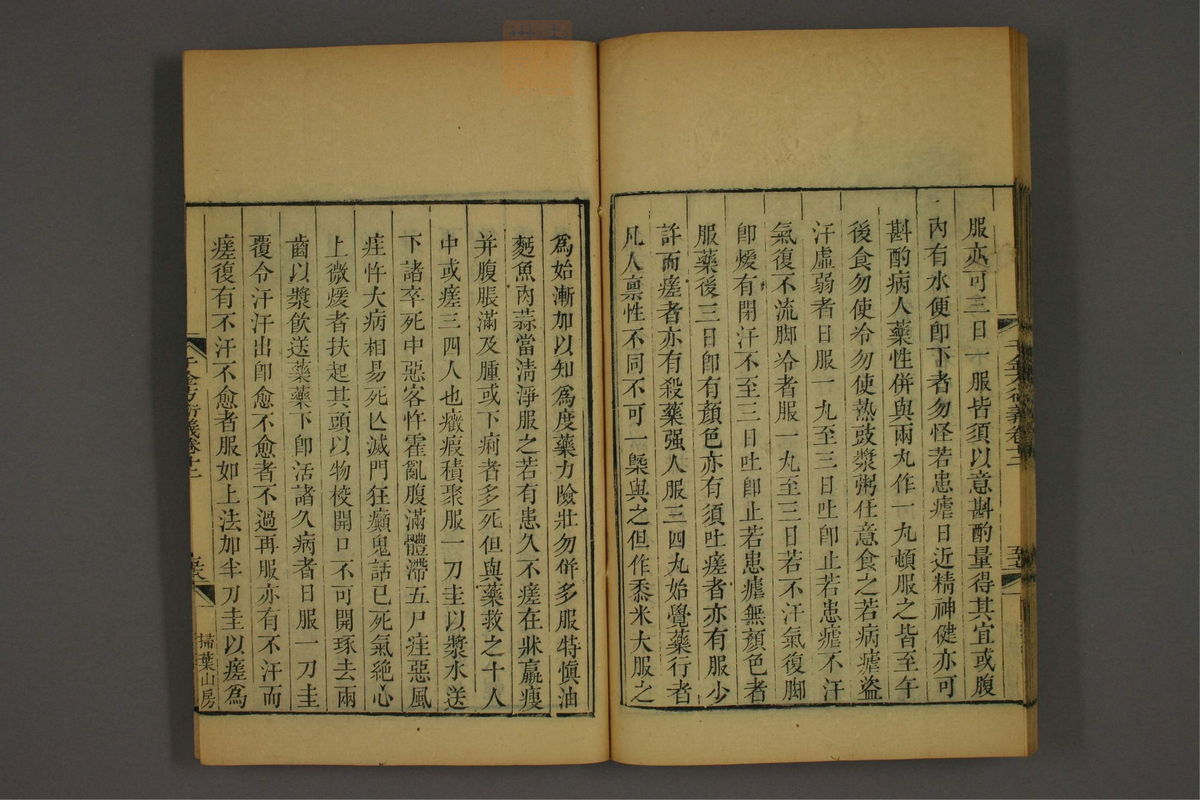 服亦可三日一服皆須以意斟酌量得其宜或腹
內有水便卽下者勿怪若患瘧日近精神健亦可
斟酌病人藥性併與兩丸作一丸頓服之皆至午
後食勿使冷勿使熱豉漿粥任意食之若病瘧盜
汗虛弱者日服一丸至三日吐卽止若患瘧不汗
氣復不流脚冷者服一丸至三日若不汗氣復脚
卽煖有閉汗不至三日吐卽止若患瘧無顏色者
服藥後三日卽有顏色亦有須吐瘥者亦有服少
許而瘥者亦有殺藥强人服三四丸始覺藥行者
凡人禀性不同不可一槩與之但作黍米大服之
千金方衍義卷十二
爲始漸加以知爲度藥力險壯勿併多服特愼油
麪魚肉蒜當淸淨服之若有患久不瘥在牀羸瘦
并腹脹滿及腫或下痢者多死但與藥救之十人
中或瘥三四人也癥瘕積聚服一刀圭以漿水送
下諸卒死中惡客忤霍亂腹滿體滯五尸疰惡風
疰忤大病相易死亾滅門狂癲鬼話已死氣絕心
上微煖者扶起其頭以物校開口不可開琢去兩
齒以漿飲送藥藥下卽活諸久病者日服一刀圭
覆令汗汗出卽愈不愈者不過再服亦有不汗而
瘥復有不汗不愈者服如上法加半刀圭以瘥爲
千金方衍義卷十二
掃葉山房